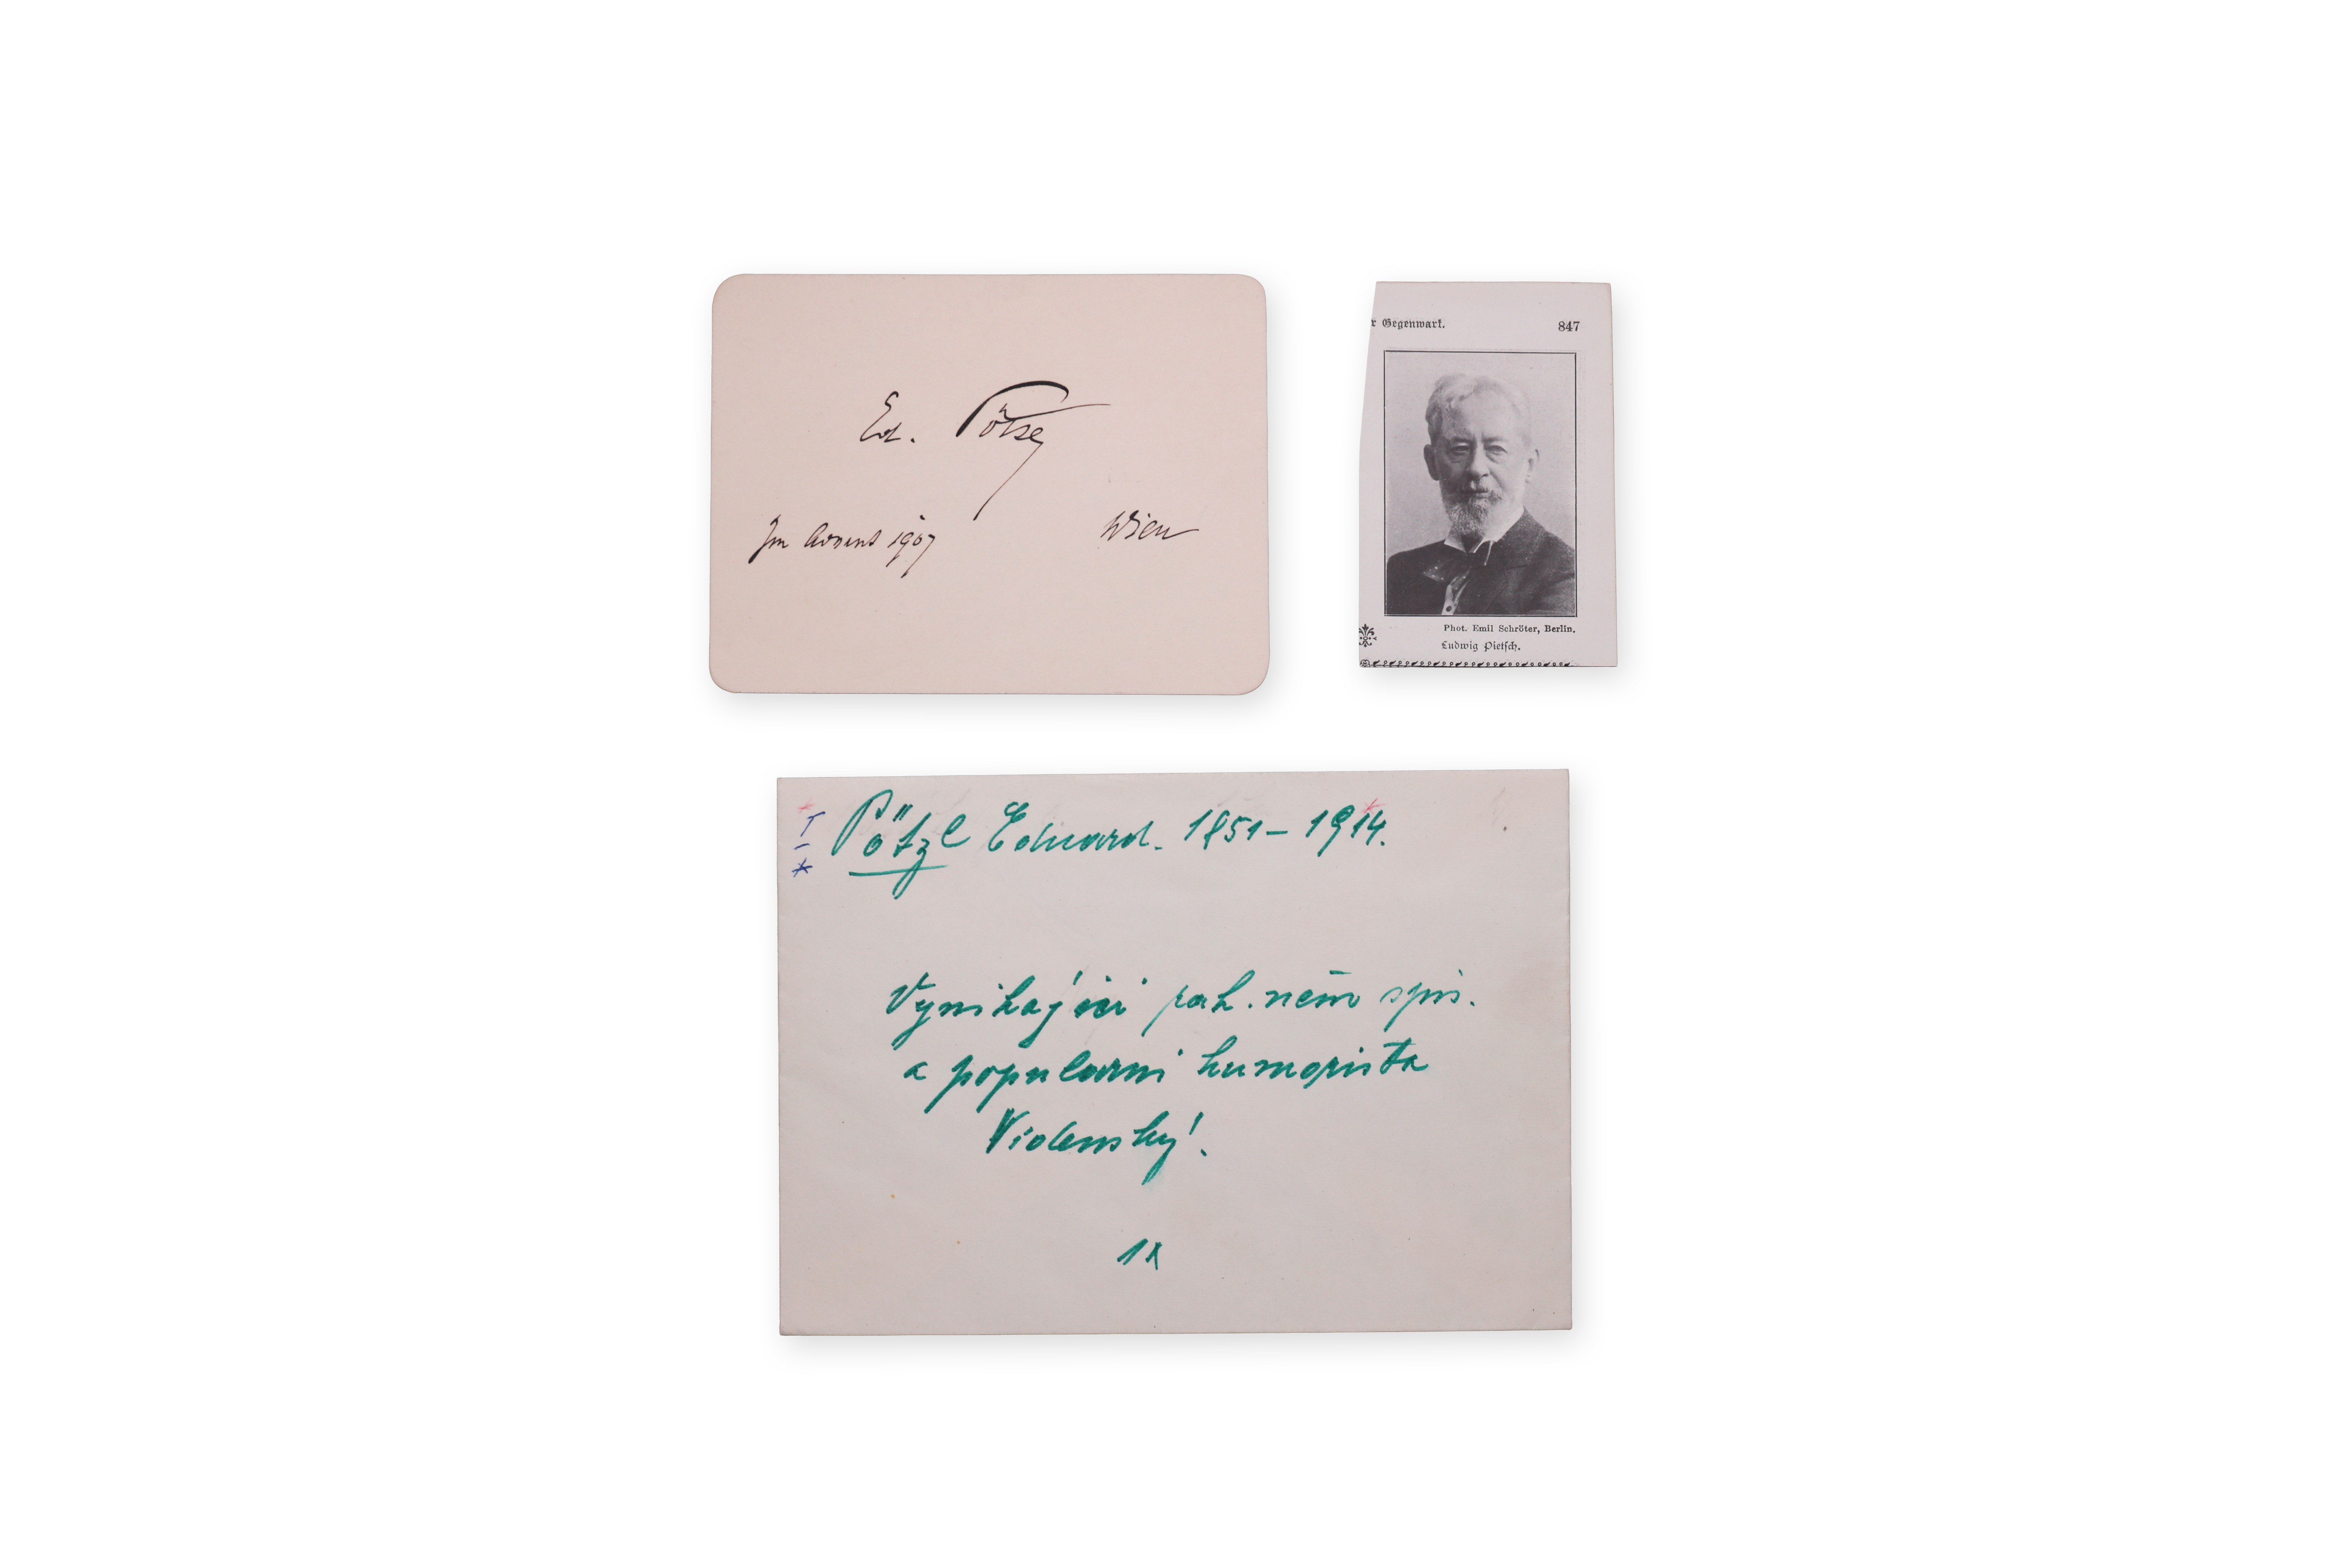 Ed. Pötzl
Im Advent 1907
Wien
r Gegenwart.
847
Phot. Emil Schröter, Berlin.
Ludwig Pietsch.
Pötzl Eduard. 1851–1914.
Vynikající rak. něm spis.
a popularni humorista
Videnský.
1x